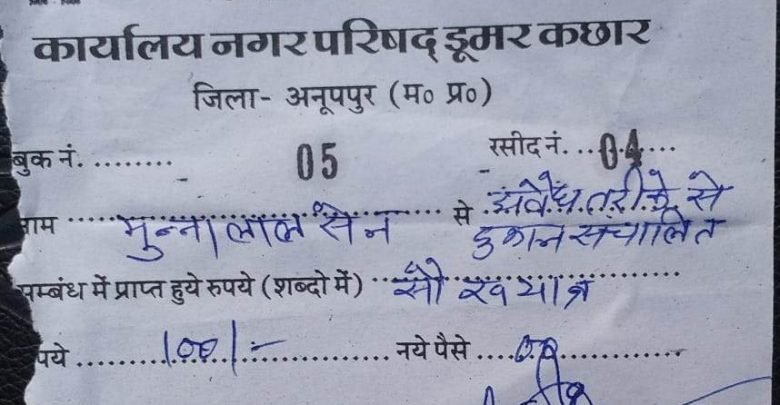 कार्यालय नगर परिषद् डूमर कछार
जिला- अनूपपुर (म० प्र०)
बुक नं. ......... 05 रसीद नं. ...04.......
नाम ........ मुन्ना लाल सेन ........ से अवैध तरीके से
दुकान संचालित
सम्बंध में प्राप्त हुये रुपये (शब्दो में) सौ रू
पये ........100/-........ नये पैसे ....00..........